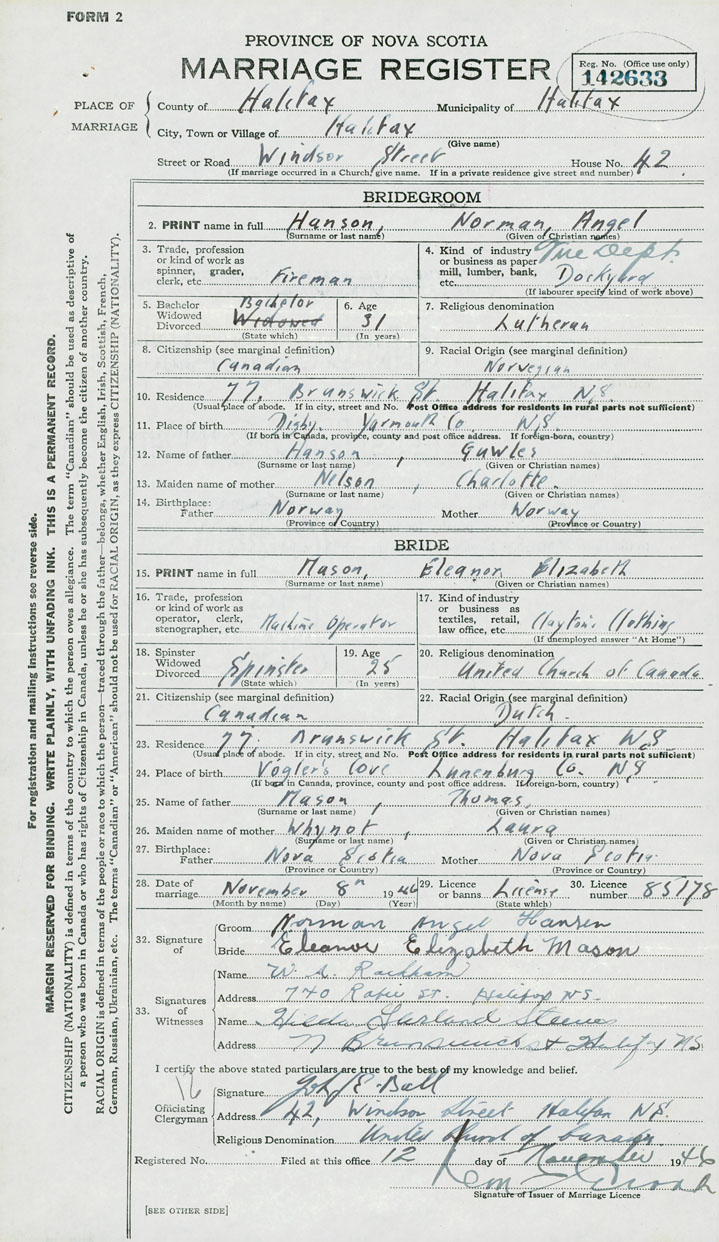 FORM 2
PROVINCE OF NOVA SCOTIA
MARRIAGE REGISTER
Reg. No. (Office use only)
142633
PLACE OF MARRIAGE
County of Halifax Municipality of Halifax
City, Town or Village of Halifax
(Give name)
Street or Road Windsor Street House No. 42
(If marriage occurred in a Church, give name. If in a private residence give street and number)
BRIDEGROOM
2. PRINT name in full Hanson, Norman, Angel
(Surname or last name) (Given or Christian names)
3. Trade, profession or kind of work as spinner, grader, clerk, etc. Fireman
4. Kind of industry or business as paper mill, lumber, bank, etc. Fire Dept. Dockyard
(If labourer specify kind of work above)
5. Bachelor Widowed Divorced Bachelor Widowed
(State which)
6. Age 31
(In years)
7. Religious denomination
Lutheran
8. Citizenship (see marginal definition)
Canadian
9. Racial Origin (see marginal definition)
Norwegian
10. Residence 77, Brunswick St. Halifax N.S
(Usual place of abode. If in city, street and No. Post Office address for residents in rural parts not sufficient)
11. Place of birth Digby. Yarmouth Co N.S
(If born in Canada, province, county and post office address. If foreign-born, country)
12. Name of father Hanson, Guwles
(Surname or last name) (Given or Christian names)
13. Maiden name of mother Nelson, Charlotte.
(Surname or last name) (Given or Christian names)
14. Birthplace: Father Norway Mother Norway
(Province or Country) (Province or Country)
BRIDE
15. PRINT name in full Mason, Eleanor Elizabeth
(Surname or last name) (Given or Christian names)
16. Trade, profession or kind of work as operator, clerk, stenographer, etc. Machine Operator
17. Kind of industry or business as textiles, retail, law office, etc. Clayton's Clothing
(If unemployed answer "At Home")
18. Spinster Widowed Divorced Spinster
(State which)
19. Age 25
(In years)
20. Religious denomination
United Church of Canada.
21. Citizenship (see marginal definition)
Canadian
22. Racial Origin (see marginal definition)
Dutch.
23. Residence 77. Brunswick St. Halifax N.S
(Usual place of abode. If in city, street and No. Post Office address for residents in rural parts not sufficient)
24. Place of birth Vogler's Cove Lunenburg Co. N.S
(If born in Canada, province, county and post office address. If foreign-born, country)
25. Name of father Mason, Thomas,
(Surname or last name) (Given or Christian names)
26. Maiden name of mother Whynot, Laura
(Surname or last name) (Given or Christian names)
27. Birthplace: Father Nova Scotia Mother Nova Scotia.
(Province or Country) (Province or Country)
28. Date of marriage November 8th 1946
(Month by name) (Day) (Year)
29. Licence or banns License
(State which)
30. Licence number 85178
32. Signature of
Groom Norman Angel Hansen
Bride Eleanor Elizabeth Mason
33. Signatures of Witnesses
Name W. A.
Address 740 Robie St. Halifax N.S.
Name Hilda Garland Steeves
Address 77 Brunswick St Halifax NS
I certify the above stated particulars are true to the best of my knowledge and belief.
12
Officiating Clergyman
Signature John E. Ball
Address 42, Windsor Street Halifax N.S.
Religious Denomination United Church of Canada.
Registered No. Filed at this office 12 day of November 1946
Signature of Issuer of Marriage Licence
[SEE OTHER SIDE]
For registration and mailing instructions see reverse side.
MARGIN RESERVED FOR BINDING. WRITE PLAINLY, WITH UNFADING INK. THIS IS A PERMANENT RECORD.
CITIZENSHIP (NATIONALITY) is defined in terms of the country to which the person owes allegiance. The term "Canadian" should be used as descriptive of
a person who was born in Canada or who has rights of Citizenship in Canada, unless he or she has subsequently become the citizen of another country.
RACIAL ORIGIN is defined in terms of the people or race to which the person—traced through the father—belongs, whether English, Irish, Scottish, French,
German, Russian, Ukrainian, etc. The terms "Canadian" or "American" should not be used for RACIAL ORIGIN, as they express CITIZENSHIP (NATIONALITY).